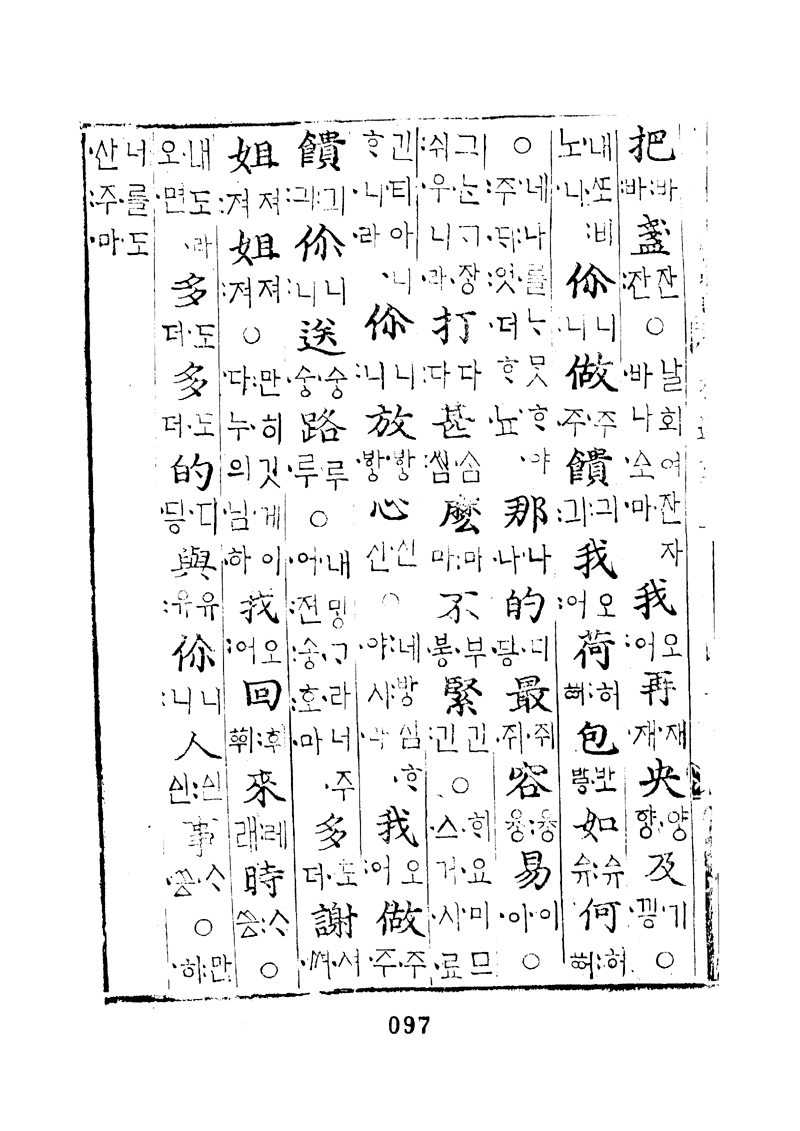 把바바盞잔잔○날회여잔자바나소마我오어再재재央양향及기낑○
내ᄯᅩ비노니你니니做주주饋긔긔我오어荷허ᅘᅥ包如슈슈何허ᅘᅥ
○네나ᄅᆞᆯ주ᄃᆡ엇더ᄒᆞ뇨那나나的디딍最쥐쥐容융융易이이○
그ᄂᆞᆫᄀᆞ장쉬우니라打다다甚슴씸麽마마不부붕緊긴긴○ᄒᆡ요미므스거시료
긴티아니ᄒᆞ니라你니니放방방心신신○네방심ᄒᆞ야시라我오어做주주
饋긔긔你니니送숭숭路루루○내ᄆᆡᇰᄀᆞ라너주어젼송호마多도더謝셔쎠
姐져져姐져져○만히깃게이다누의님하我오어回來레래時스쓰○
내도라오면多도더多도더的디딍與유유你니니人신싄事스쓰○만히
너를도산주마
097